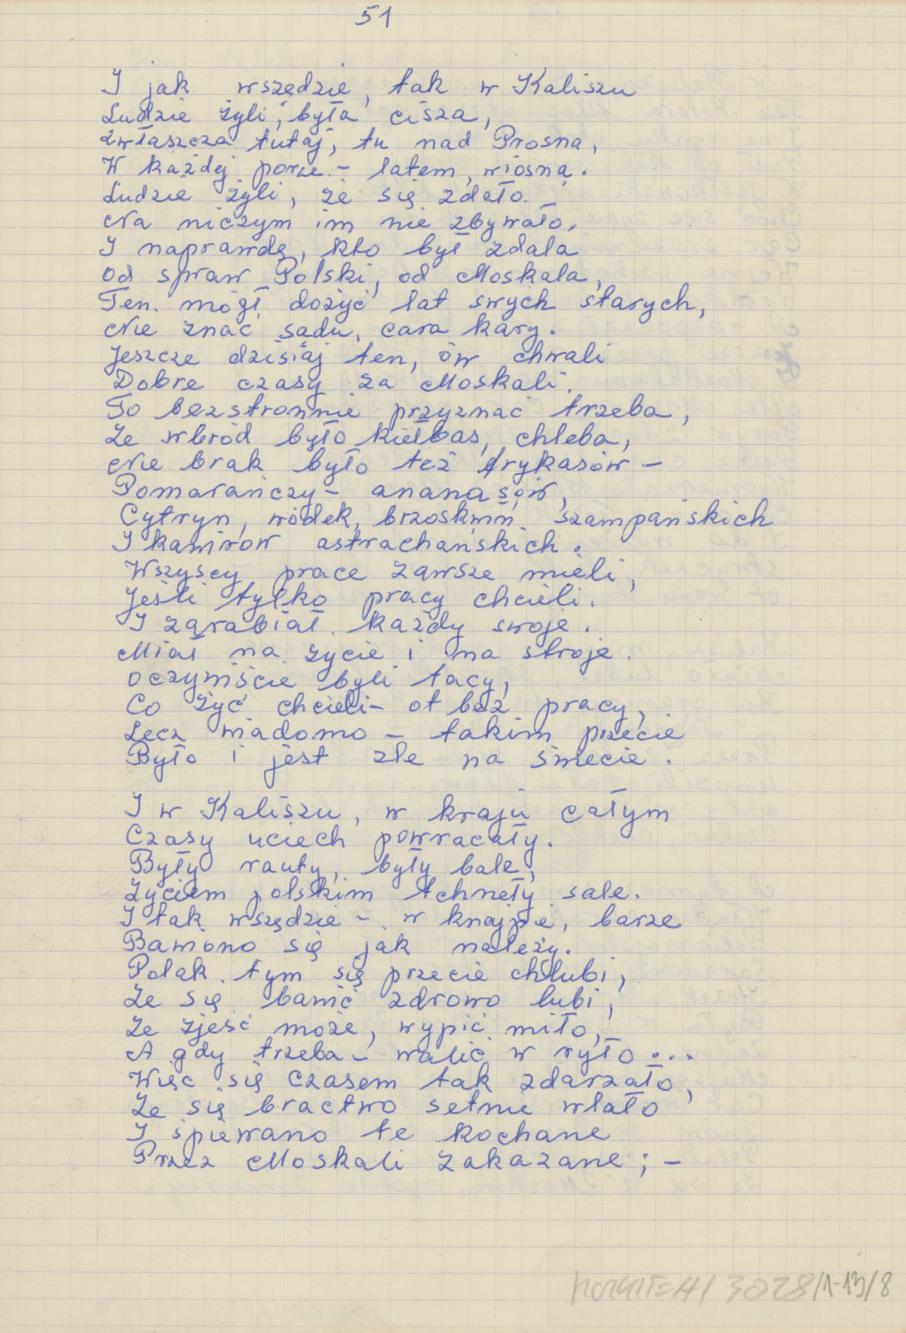 51
I jak wszędzie, tak w Kaliszu
Ludzie żyli, była cisza,
Zwłaszcza tutaj, tu nad Prosną,
W każdej porze – latem, wiosną.
Ludzie żyli, że się zdało.
Na niczym im nie zbywało.
I naprawdę, kto był zdala
od spraw Polski, od Moskala,
Ten mógł dożyć lat swych starych,
Nie znać sądu, cara kary.
Jeszcze dzisiaj ten, ów chwali
Dobre czasy za Moskali.
To bezstronnie przyznać trzeba,
Że wbród było kiełbas, chleba,
Nie brak było też frykasów –
Pomarańczy – ananasów,
Cytryn, wódek, brzoskwiń szampańskich
I kawiorów astrachańskich.
Wszyscy prace zawsze mieli,
Jeśli tylko pracy chcieli.
I zarabiał każdy swoje.
Miał na życie i na stroje.
Oczywiście byli tacy,
Co żyć chcieli – ot bez pracy,
Lecz wiadomo – takim przecie
Było i jest źle na świecie.
I w Kaliszu, w kraju całym
Czasy uciech powracały.
Były rauty, były bale,
Życiem polskim tchnęły sale.
I tak wszędzie – w knajpie, barze
Bawiono się jak należy.
Polak tym się przecie chlubi,
Że się bawić zdrowo lubi,
Że zjeść może, wypić miło,
A gdy trzeba – walić w ryło...
Więc się czasem tak zdarzało,
Że się bractwo setnie wlało
I śpiewano te kochane
Przez Moskali zakazane; –
3028/1-13/8